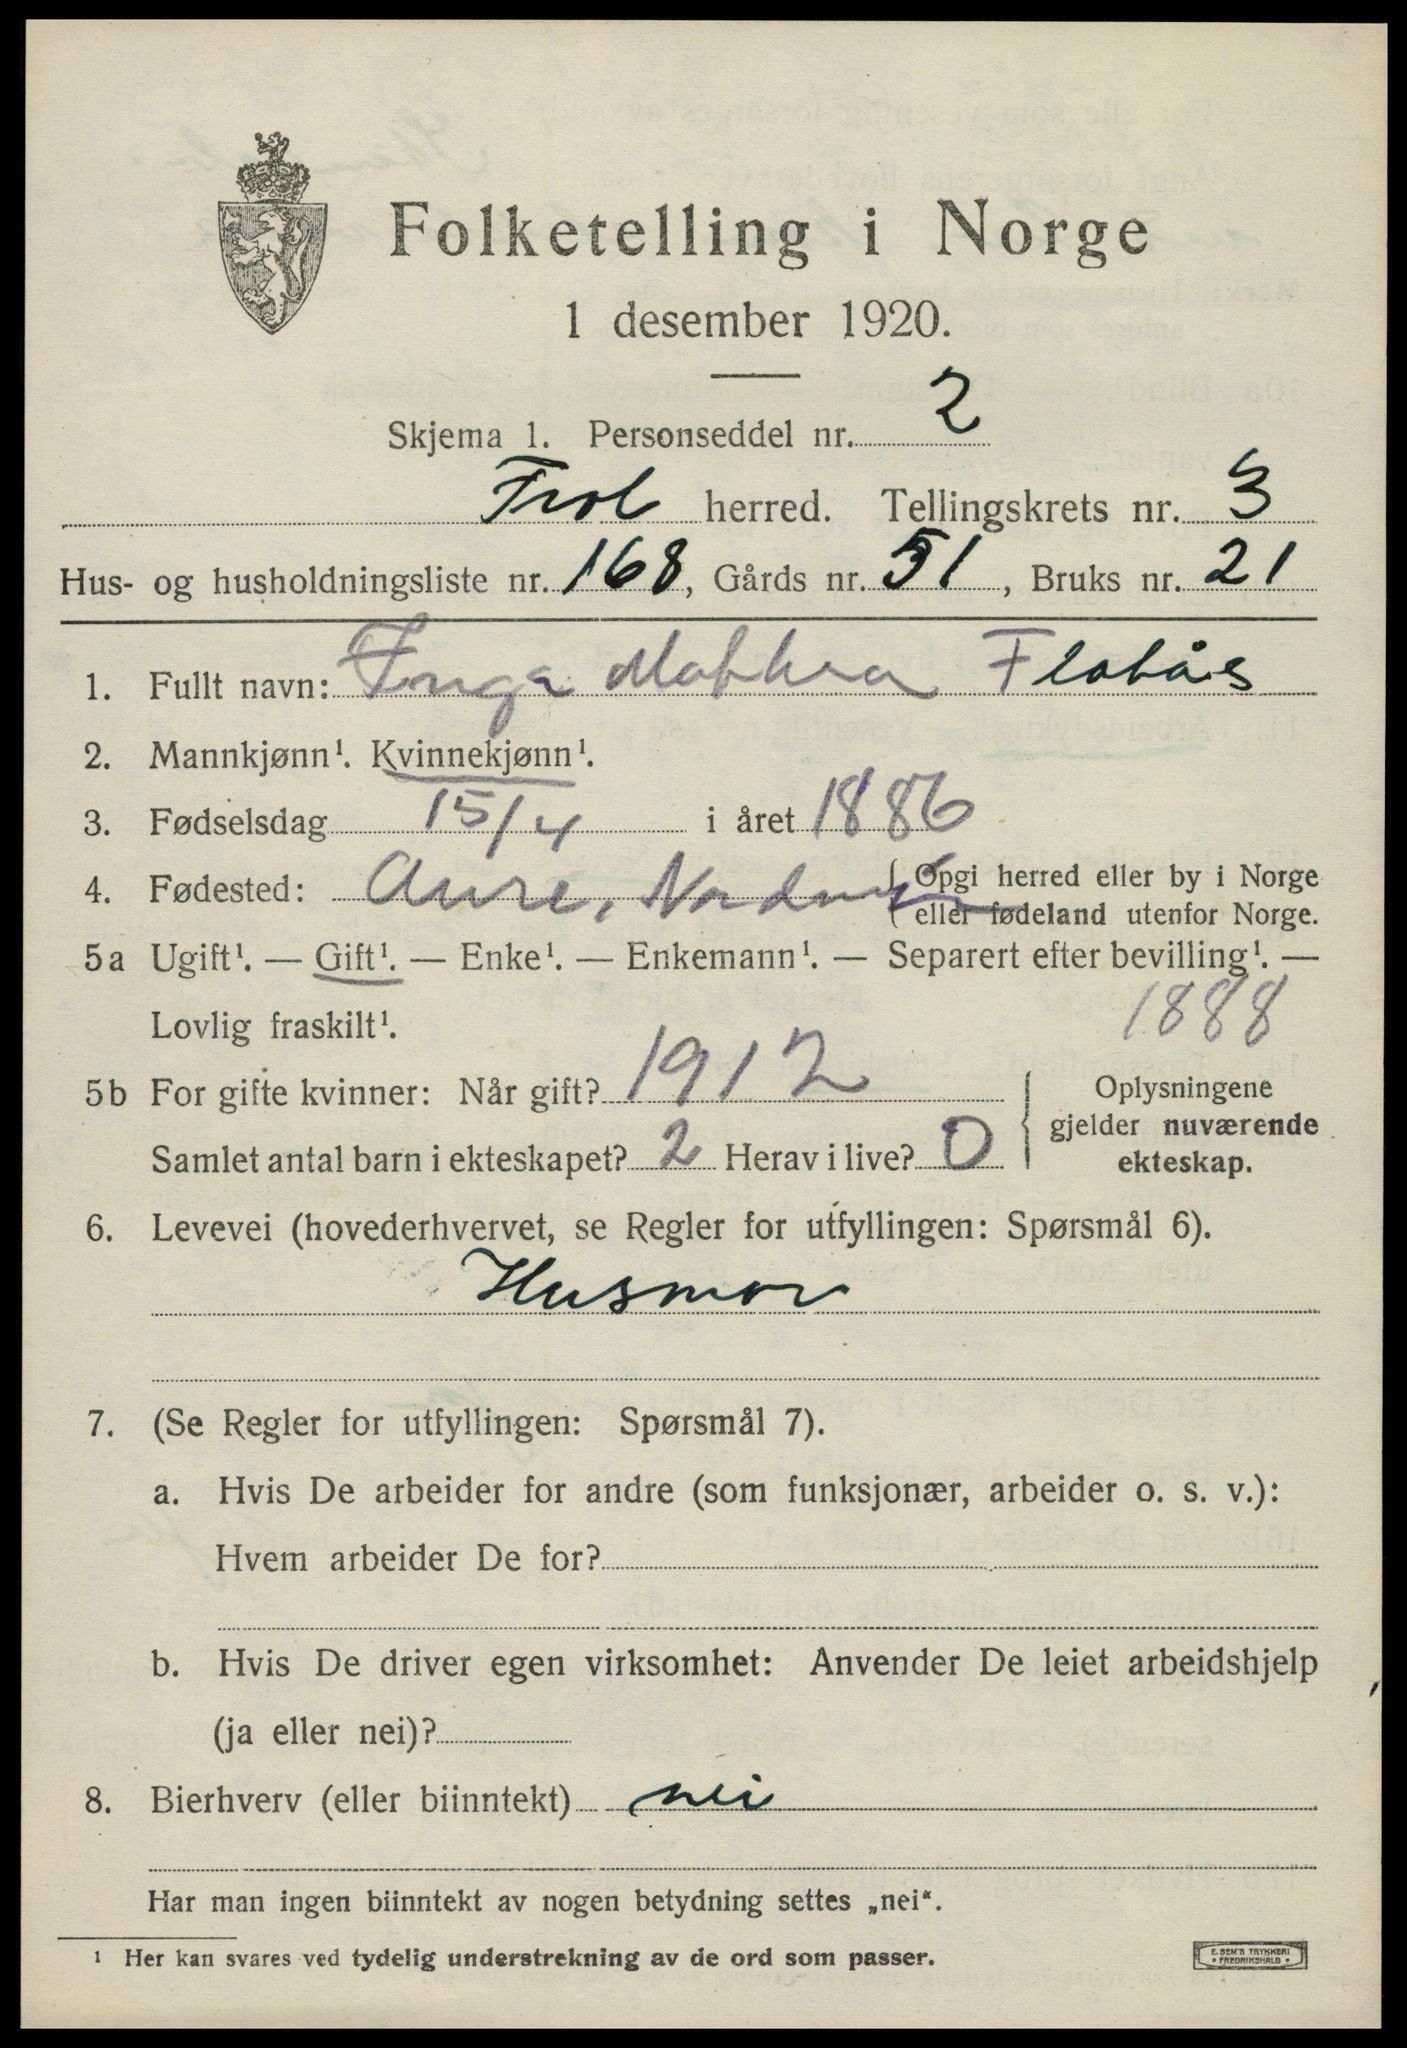 Folketelling i Norge
1 desember 1920.
Skjema 1. Personseddel nr. 2
Frol herred. Tellingskrets nr. 3
Hus- og husholdningsliste nr. 168, Gårds nr. 51, Bruks nr. 21
1. Fullt navn: Inga Flatås
2. Mannkjønn¹. Kvinnekjønn¹.
3. Fødselsdag 15/4 i året 1886
4. Fødested: Aure, Nordmør (Opgi herred eller by i Norge
eller fødeland utenfor Norge.
5a Ugift¹. — Gift¹. — Enke¹. — Enkemann¹. — Separert efter bevilling¹. —
Lovlig fraskilt¹. 1888
5b For gifte kvinner: Når gift? 1912 Oplysningene
gjelder nuværende
Samlet antal barn i ekteskapet? 2 Herav i live? 0 ekteskap.
6. Levevei (hovederhvervet, se Regler for utfyllingen: Spørsmål 6).
Husmor
7. (Se Regler for utfyllingen: Spørsmål 7).
a. Hvis De arbeider for andre (som funksjonær, arbeider o. s. v.):
Hvem arbeider De for?
b. Hvis De driver egen virksomhet: Anvender De leiet arbeidshjelp
(ja eller nei)?
8. Bierhverv (eller biinntekt) nei
Har man ingen biinntekt av nogen betydning settes „nei“.
¹ Her kan svares ved tydelig understrekning av de ord som passer.
E. SEM'S TRYKKERI
• FREDRIKSHALD •